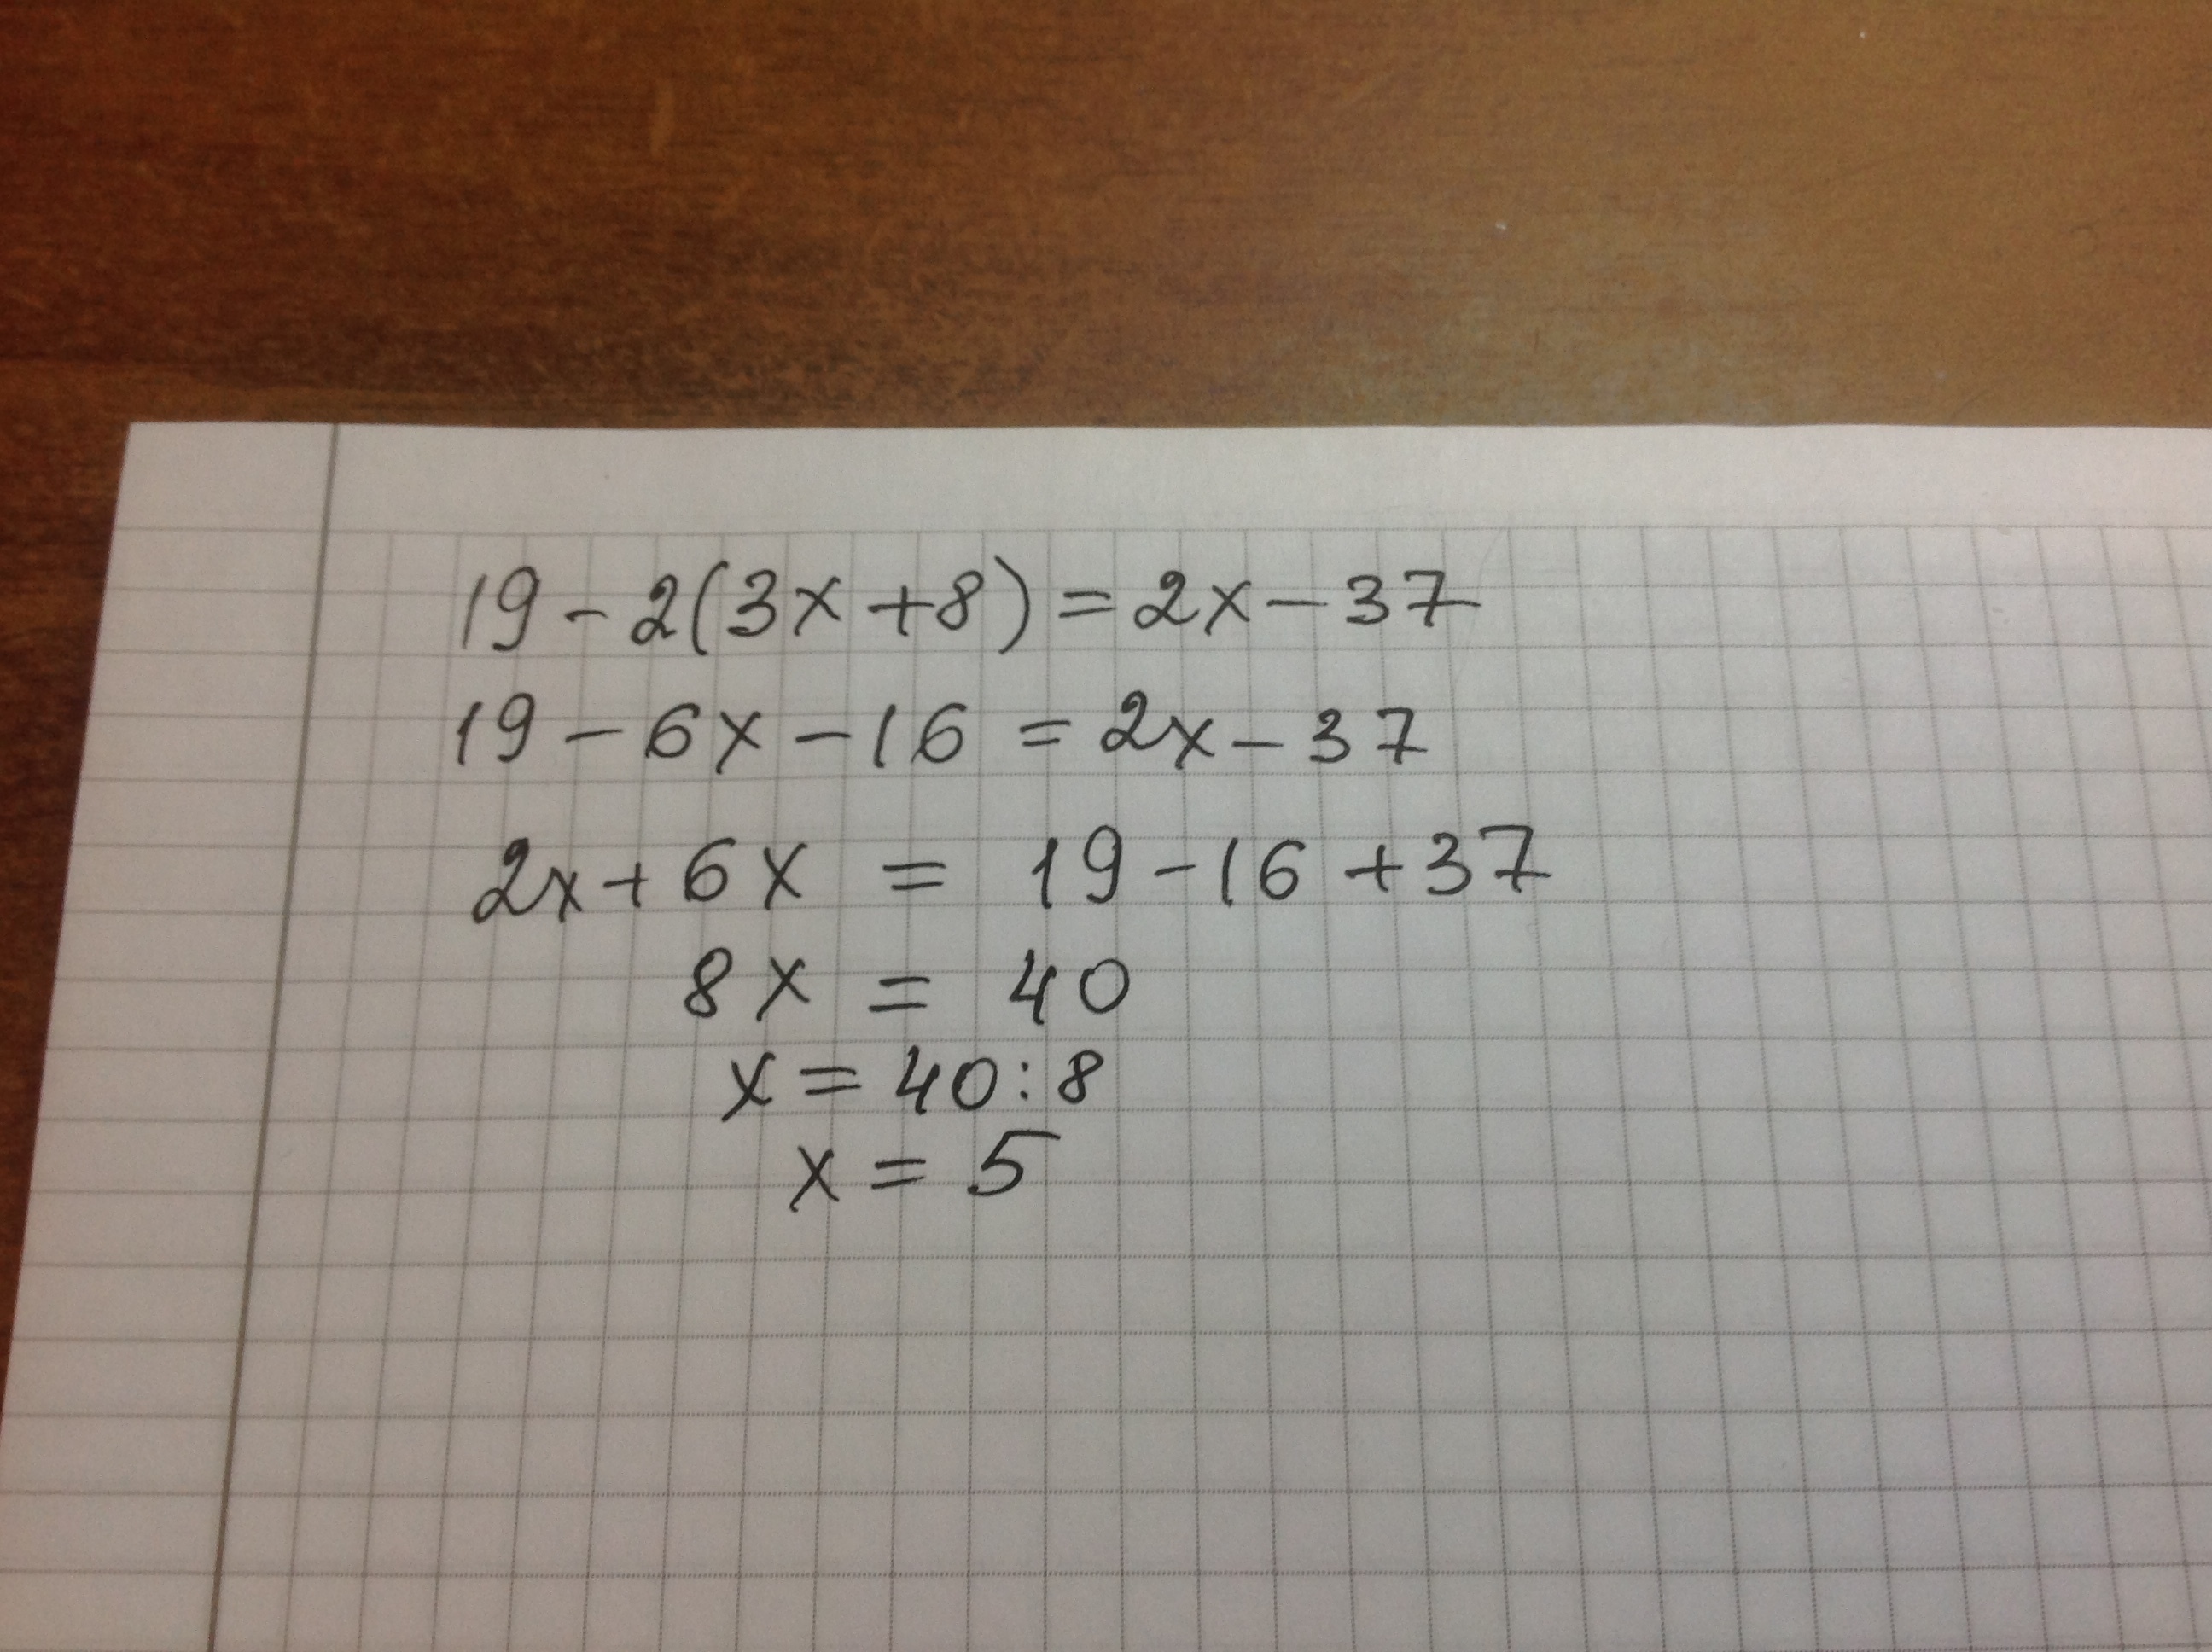 19 - 2(3x + 8) = 2x - 37
19 - 6x - 16 = 2x - 37
2x + 6x = 19 - 16 + 37
8x = 40
x = 40 : 8
x = 5